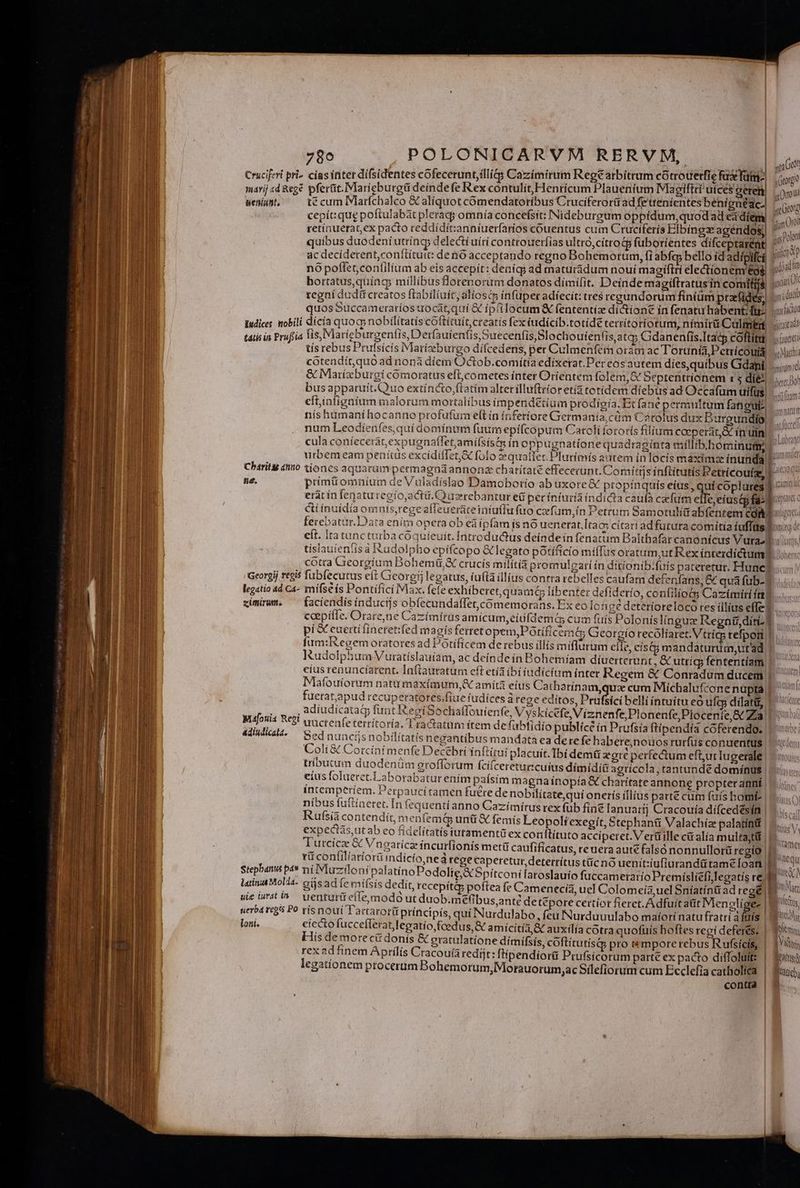 780 POLONICARVM RERVM,
Cruciferi pri- cias inter dissidentes cōfecerunt, illiq́; Cazimirum Regē arbitrum cōtrouersię suæ sum-
marij ad Regē pserūt. Marięburgū deinde se Rex contulit, Henricum Plauenium Magistri uices gerēn
ueniunt. tē cum Marschalco & aliquot cōmendatoribus Cruciferorū ad se uenientes benignè ac-
cepit: quę postulabāt pleraq́; omnia concessit: Nideburgum oppidum, quod ad eā diem
retinuerat, ex pacto reddidit: anniuersarios cōuentus cum Cruciferis Elbingæ agendos,
quibus duodeni utrinq; delecti uiri controuersias ultrò, citroq́; subörientes disceptarent
ac deciderent, constituit: de nō acceptando regno Bohemorum, si absq; bello id adipisci
nō posset, consilium ab eis accepit: deniq; ad maturādum noui magistri electionem eos
hortatus, quinq; millibus florenorum donatos dimisit. Deinde magistratus in comitijs
regni dudū creatos stabiliuit, alios q́; insuper adiecit: tres regundorum finium præsides,
quos Succamerarios uocāt, qui & ipsi locum & sententiæ dictionē in senatu habent: iu-
Iudices nobili dicia quoq; nobilitatis cōstituit, creatis sex iudicib. totidē territoriorum, nimirū Culmēn
tatis in Prussia sis, Marięburgensis, Derfauiensis, Suecensis, Slochouiensis, atq; Gdanensis. Itaq́; cōstitu
tis rebus Prussicis Mariæburgo discedens, per Culmensem oram ac Torunia, Petricouiā
cōtendit, quò ad nonā diem Octob. comitia edixerat. Per eos autem dies, quibus Gdani
& Mariæburgi cōmoratus est, cometes inter Orientem solem, & Septentrionem 15 die-
bus apparuit. Quo extincto, statim alter illustrior etiā totidem diebus ad Occasum uisus
est, insignium malorum mortalibus impendētium prodigia. Et sanè permultum sangui-
nis humani hoc anno profusum est in inferiore Germania, cùm Carolus dux Burgundio
num Leodienses, qui dominum suum episcopum Caroli sororis filium cœperāt, & in uin
cula coniecerāt, expugnasset, amissisq́; in oppugnatione quadraginta millib. hominum,
urbem eam penitùs excidisset, & solo æquasset. Plurimis autem in locis maximæ inunda
Charitas anno tiones aquarum permagnā annonæ charitatē effecerunt. Comitijs institutis Petricouiæ,
næ. primū omnium de Vuladislao Damoborio ab uxore & propinquis eius, qui cōplures
erāt in senatu regio, actū. Quærebantur eū per iniuriā indicta causa cæsum esse, eiusq́; fa-
ctī inuidia omnis, rege asseuerāte iniussu suo cæsum, in Petrum Samotuliū absentem cōn
ferebatur. Data enim opera ob eā ipsam is nō uenerat. Itaq; citari ad futura comitia iussus
est. Ita tunc turba cōquieuit. Introductus deinde in senatum Balthasar canonicus Vura-
tislauiensis à Rudolpho episcopo & legato pōtificio missus oratum, ut Rex interdictum
cōtra Georgium Bohemū, & crucis militiā promulgari in ditionib. suis pateretur. Hunc
Georgij regis subsecutus est Georgij legatus, iustā illius contra rebelles causam defensans, & quā sub-
legatio ad Ca- misse is Pontifici Max. sese exhiberet, quamq́; libenter desiderio, consilioq́; Cazimiri in
zimirum. faciendis inducijs obsecundasset, cōmemorans. Ex eo longè deteriore loco res illius esse
cœpisse. Orare, ne Cazimirus amicum, eiusdemq́; cum suis Polonis linguæ Regnū, diri-
pi & euerti sineret: sed magis ferret opem, Pōtificemq́; Georgio recōliaret. Vtriq; respon
sum: Regem oratores ad Pōtificem de rebus illis missurum esse, eisq́; mandaturum, ut ad
Rudolphum Vuratislauiam, ac deinde in Bohemiam diuerterent, & utriq; sententiam
eius renunciarent. Instauratum est etiā ibi iudicium inter Regem & Conradum ducem
Masouiorum natu maximum, & amitā eius Catharinam, quæ cum Michalusçone nupta
fuerat, apud recuperatores. siue iudices à rege editos, Prussici belli intuitu eò usq; dilatū,
Masouia Regi adiudicataq́; sunt Regi Sochassouiense, Vyskicése, Viznense, Plonense, Plocense, & Za
adiudicata. uucrense territoria. Tractatum item de subsidio publicè in Prussia stipendia cōferendo.
Sed nuncijs nobilitatis negantibus mandata ea de re se habere, nouos rursus conuentus
Coli & Corcini mense Decēbri institui placuit. Ibi demū ægrè perfectum est, ut Iugerale
tributum duodenûm grossorum fcisceretur: cuius dimidiū agricola, tantundē dominus
eius solueret. Laborabatur enim passim magna inopia & charitate annonę propter anni
intemperiem. Perpauci tamen fuêre de nobilitate, qui oneris illius partē cum suis homi-
nibus sustineret. In sequenti anno Cazimirus rex sub finē Ianuarij Cracouia discedēs in
Russiā contendit, mensemq́; unū & semis Leopoli exegit, Stephanū Valachiæ palatinū
expectās, ut ab eo fidelitatis iuramentū ex constituto acciperet. Verū ille cū alia multa, tū
Turcicæ & Vngaricæ incursionis metū causificatus, re uera autē falsò nonnullorū regio
rū consiliariorū indicio, ne à rege caperetur, deterritus tūc nō uenit: iusiurandū tamē Ioan
Stephanus pa- ni Muziloni palatino Podolię, & Spitconi Iaroslauio succamerario Premislięsi, legatis re
latinus Molda- gijs ad se missis dedit, recepitq́; postea se Cameneciā, uel Colomeiā, uel Sniatinū ad regē
uie iurat in uenturū esse, modò ut duob. mēsibus, antè detēpore certior fieret. Adfuit aūt Mengligę-
uerba regis Po ris noui Tartarorū principis, qui Nurdulabo, seu Nurduuulabo maiori natu fratri à suis
loni. eiecto successerat, legatio, fœdus, & amicitiā, & auxilia cōtra quosuis hostes regi deferēs.
His de more cū donis & gratulatione dimissis, cōstitutisq́; pro tempore rebus Russicis,
rex ad finem Aprilis Cracouiā redijt: stipendiorū Prussicorum partē ex pacto dissoluit:
legationem procerum Bohemorum, Morauorum, ac Silesiorum cum Ecclesia catholica
contra